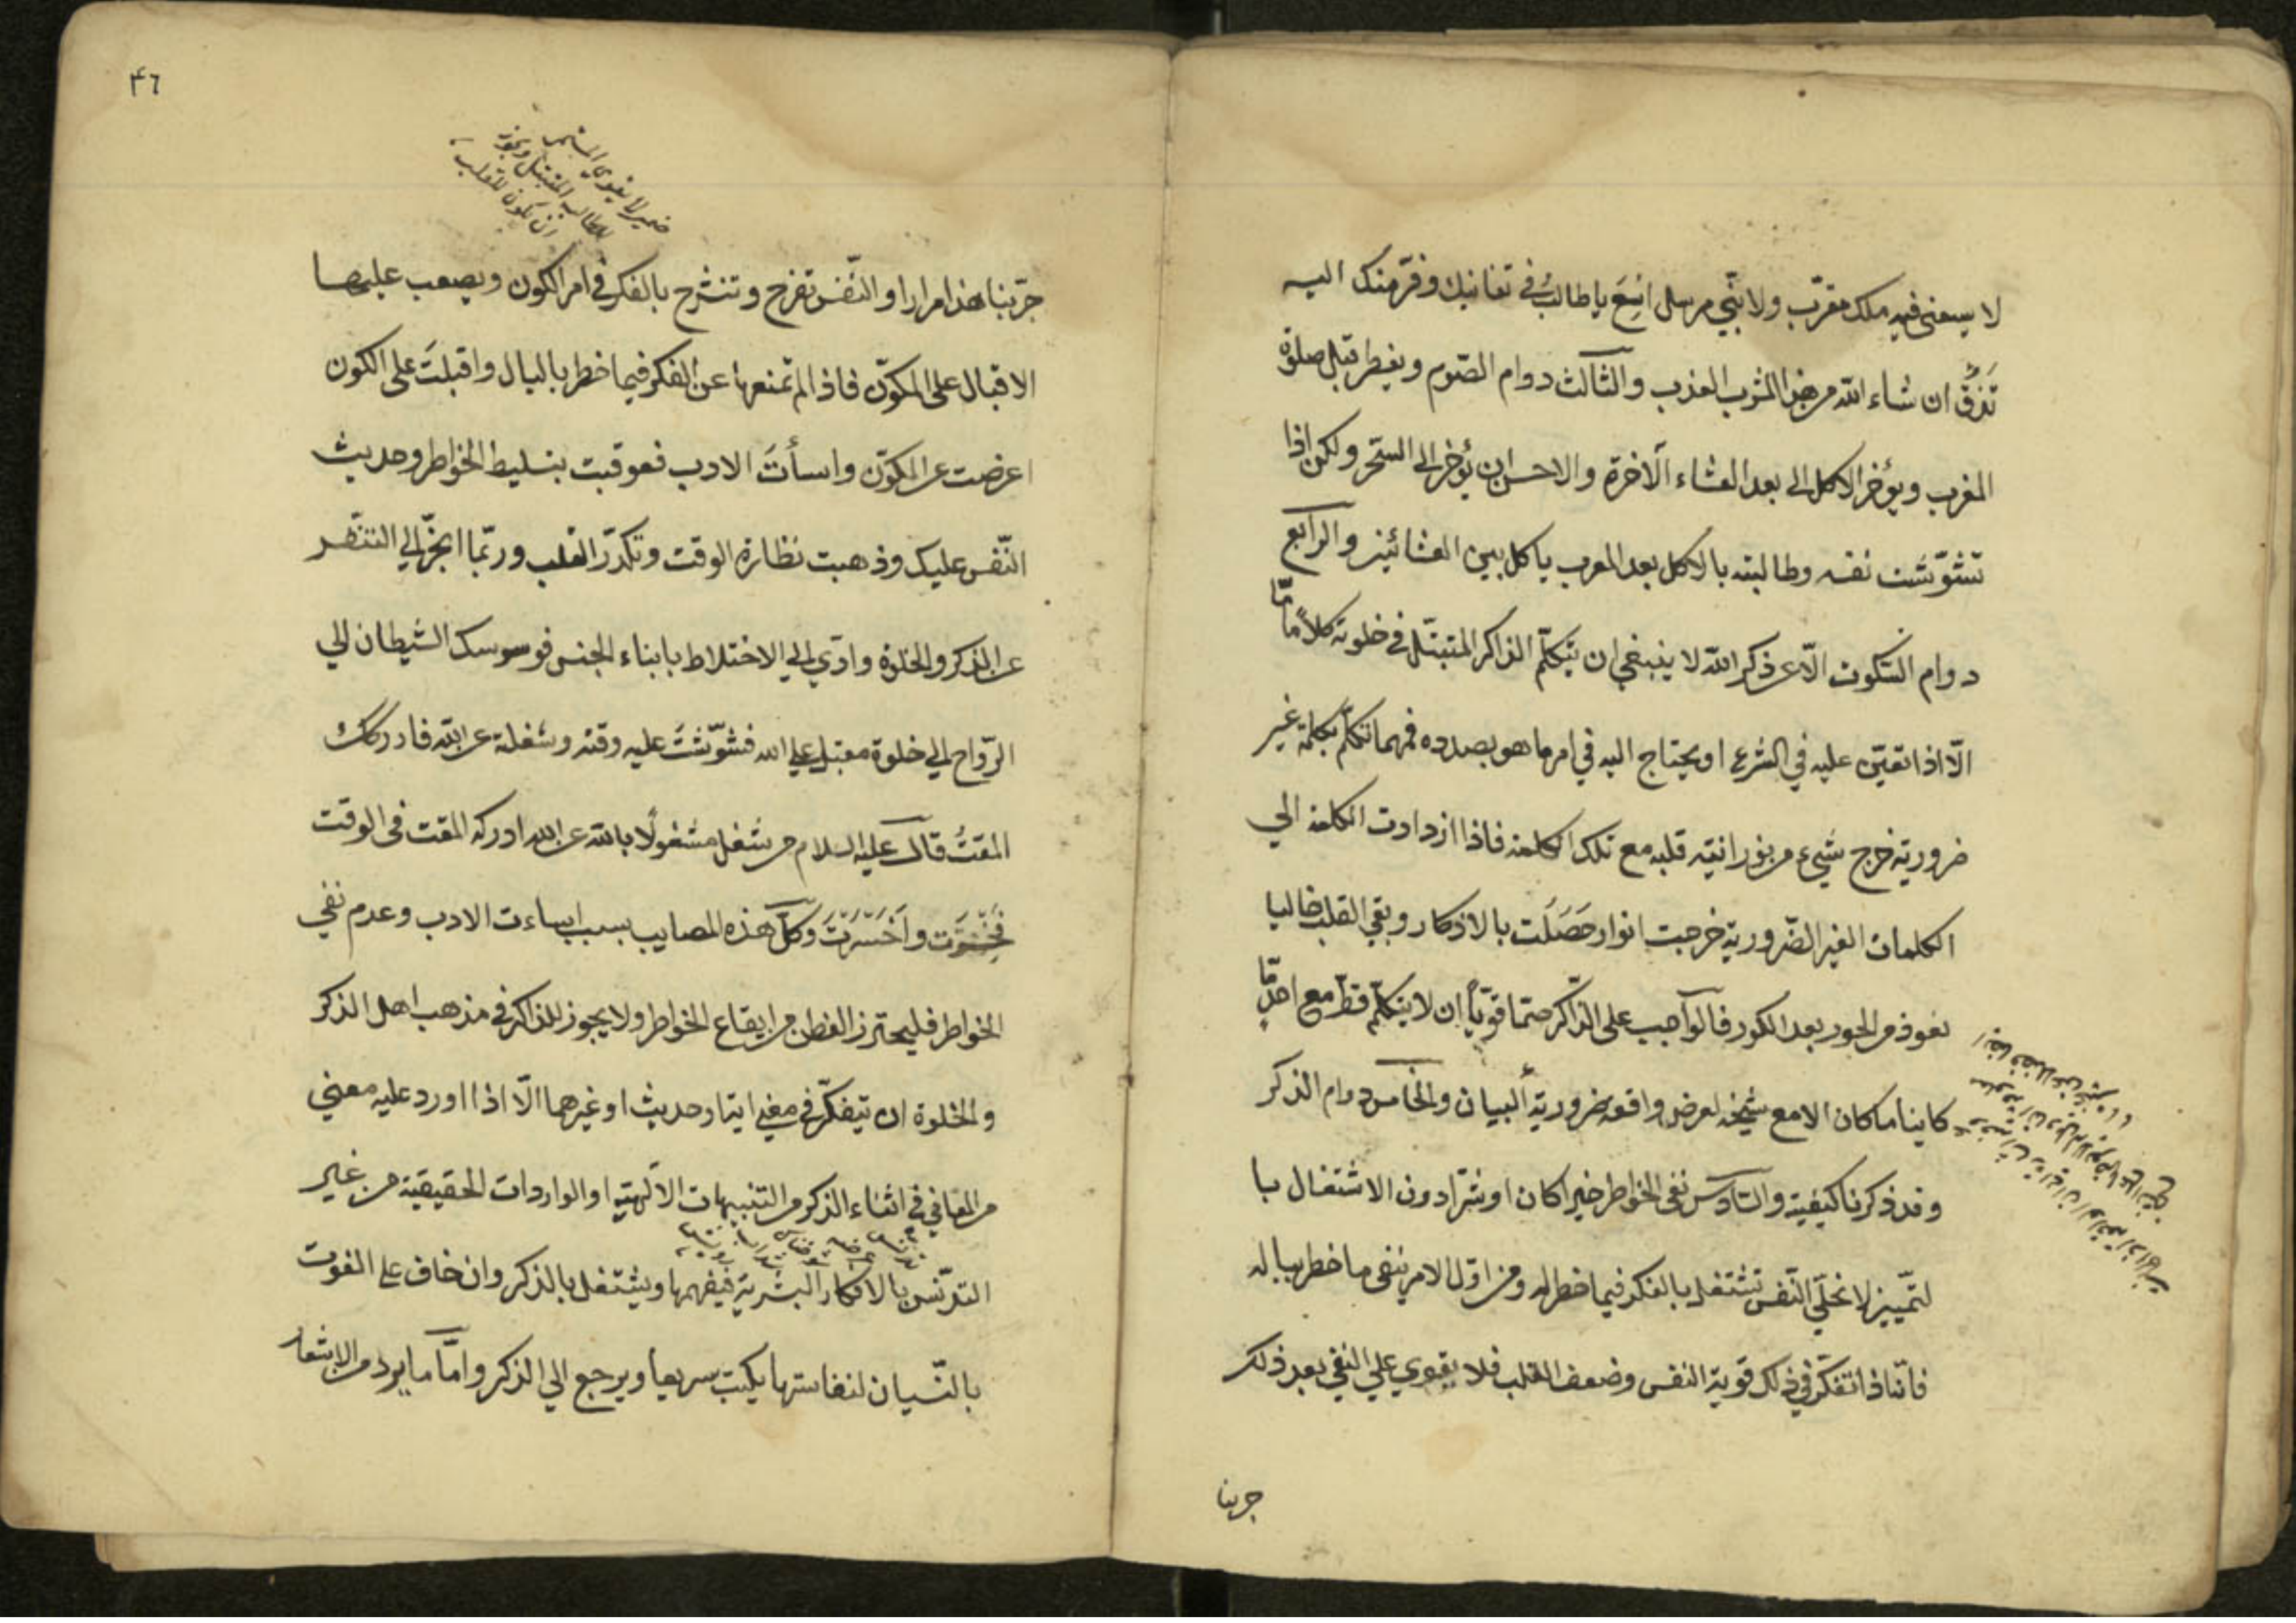 لا يسعنى فيه ملك مقرّب ولا نبّي مرسل اسْعَ يا طالبُ في تفانيك وفرّ منك اليه
تَذُقْ ان شاء الله من هذا المشرب العذب والثالث دوام الصّوم ويفطر قبل صلوة
المغرب ويؤخر الاكل الى بعد العشاء الآخرة والاحسن ان يؤخر الى السّحر ولكن اذا
تشوّشت نفسه وطالبته بالاكل بعد المغرب ياكل بين العشائين والرابع
دوام السّكوت الّا عن ذكر الله لا ينبغي ان يتكلّم الذاكر المتبتّل في خلوته كلاماً مّا
الّا اذا تعيّن عليه في الشرع او يحتاج اليه في امر ما هو بصدده فمهما تكلّم بكلمة غير
ضرورية خرج شيء من نورانيّة قلبه مع تلك الكلمة فاذا ازدادت الكلمة الى
الكلمات الغير الضّرورية خرجت انوار حَصَلَت بالاذكار وبقي القلب خاليا
نعوذ من الحور بعد الكور فالواجب على الذّاكر حتما قويّاً ان لا يتكلّم قطّ مع احدٍ مّا
كاينا ما كان الا مع شيخه لعرض واقعه ضرورية البيان والخامس دوام الذكر
وقد ذكرنا كيفيّته والسّادس نفى الخواطر خيرا كان او شرّا دون الاشتغال با
لتمّييز لا تخلّي النّفس تشتغل بالفكر فيما خطر له ومن اوّل الامر ينفى ما خطر بباله
فانّه اذا تفكّر في ذلك قوية النفس وضعف القلب فلا يقوي على النفي بعد ذلك
جربنا
٤٦
ضمير لا يقوي
للطالب المتبتل ويجوز
ان يكون للقلب
جرّبنا هذا مرارا والنّفس تفرح وتنشرح بالفكر في امر الكون ويصعب عليها
الاقبال على المكوّن فاذا لم تمنعها عن الفكر فيما خطر بالبال واقبلتَ على الكون
اعرضت عن المكوّن واسأتَ الادب فعوقبت بتسليط الخواطر وحديث
النّفس عليك وذهبت نظارة الوقت وتكدّر القلب وربّما انجّر الى التنفّر
عن الذكر والخلوة وادّي الي الاختلاط بابناء الجنس فوسوسك الشيطان الي
الرّواح الي خلوة مقبل علي الله فشوّشتَ عليه وقته وشغلته عن الله فادركك
المقتُ قال عليه السلام من شغل مشغولًا بالله عن الله ادركه المقت فى الوقت
واَخَسَّرْتَ وكلّ هذه المصايب بسبب اساءت الادب وعدم نفي
الخواطر فليحترز الفطن من ايقاع الخواطر ولا يجوز للذاكر في مذهب اهل الذكر
والخلوة ان يتفكّر في معني اية او حديث او غيرهما الّا اذا اورد عليه معني
من المعاني في اثناء الذكر من التنبيهات الآلهيّة او الواردات الحقيقية من غير
التدنّس بالافكار البشرية فيفهمها ويشتغل بالذكر وان خاف على الفوت
بالنّسيان لنفاستها يكتب سريعا ويرجع الي الذكر وامّا ما يرد من الاشعار